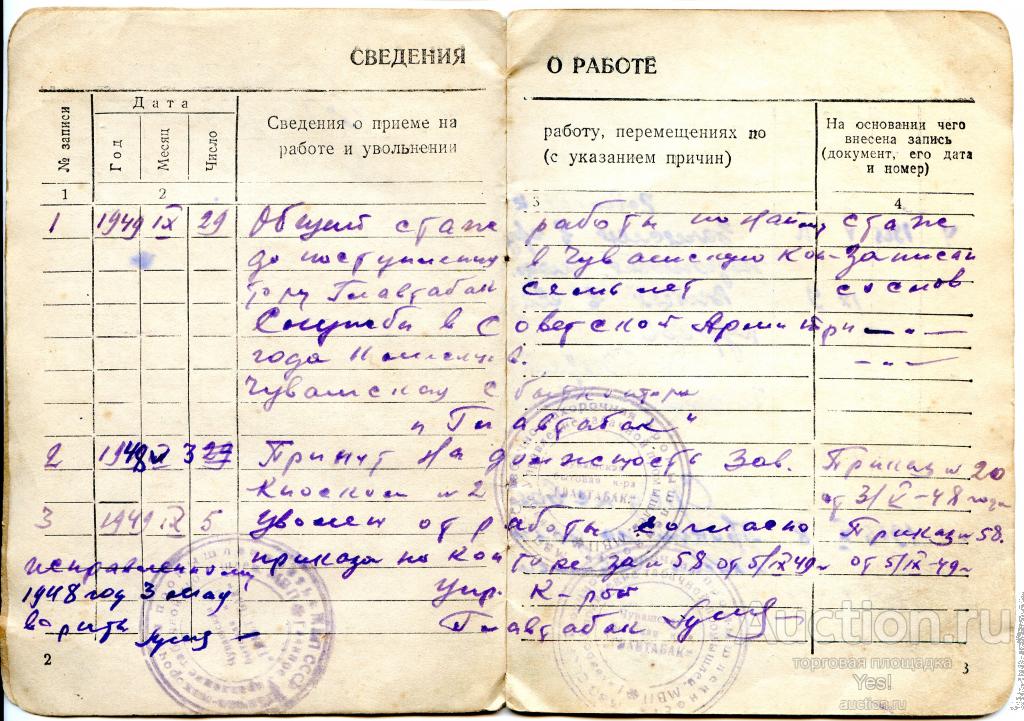 СВЕДЕНИЯ О РАБОТЕ
№ записи
Дата
Год
Месяц
Число
Сведения о приеме на работу, перемещениях по
работе и увольнении (с указанием причин)
На основании чего
внесена запись
(документ, его дата
и номер)
1 2 3 4
1 1949 IX 29 Общий стаж работы по найму стаж
до поступления в Чувашскую кон- записан
тору Главтабак семь лет со слов
Службы в Советской Армии три — „ —
года — „ —
Чувашская сбытконтора
„Главтабак"
2 1948 V 3 Принят на должность Зав. Приказ № 20
Киоском № 2 от 3/V-48 года
3 1949 IX 5 Уволен от работы согласно Приказ 58.
приказа по конторе за № 58 от 5/IX 49г от 5/IX-49г
исправленному
1948 год 3 мая
верить
Упр. К-рой
Главтабак
2
3
Auction.ru
торговая площадка
Yes!
auction.ru